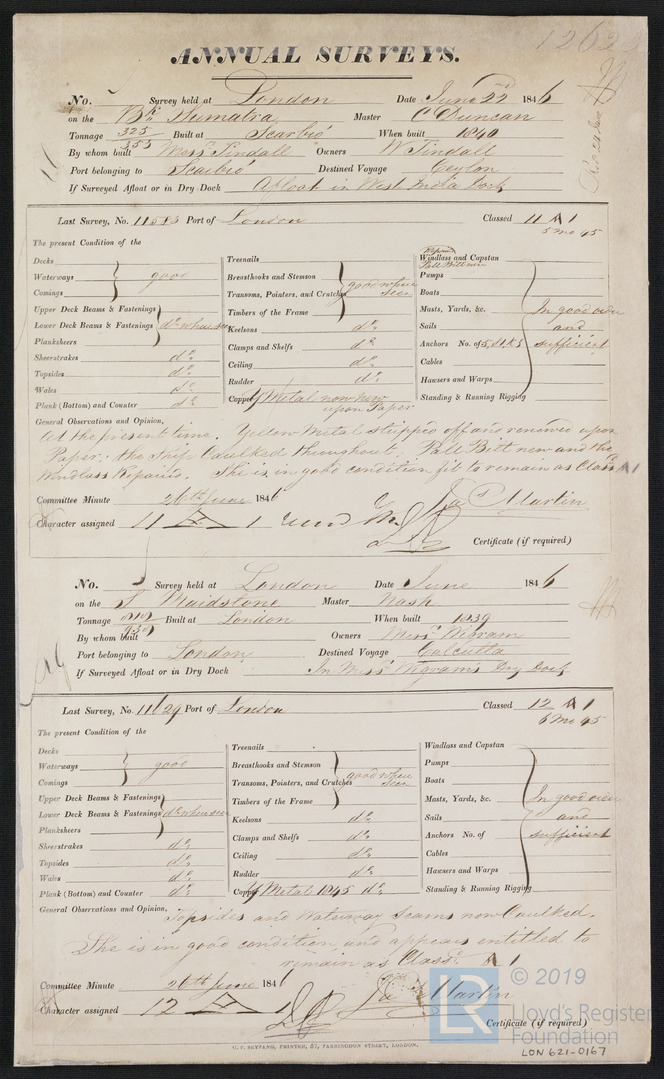 ANNUAL SURVEYS.
No. Survey held at London Date June 22nd 1846
on the Bk Sumatra Master C Duncan
Tonnage 325 Built at Scarbro' When built 1840
353
By whom built Messrs Tindall Owners W Tindall
Port belonging to Scarbro' Destined Voyage Ceylon
If Surveyed Afloat or in Dry Dock Afloat in West India Dock
Last Survey, No. Port of London Classed 11 A 1
5 Mo 45
The present Condition of the
Decks
Waterways good
Comings
Upper Deck Beams & Fastenings
Lower Deck Beams & Fastenings do where seen
Planksheers
Sheerstrakes do
Topsides do
Wales do
Plank (Bottom) and Counter do
Treenails
Breasthooks and Stemson
Transoms, Pointers, and Crutches good where seen
Timbers of the Frame
Keelsons do
Clamps and Shelfs do
Ceiling do
Rudder do
Copper Y Metal now new
upon Paper
Repaired
Windlass and Capstan
Pall Bitt new
Pumps
Boats
Masts, Yards, &c. In good order
Sails and
Anchors No. of sufficient
Cables
Hawsers and Warps
Standing & Running Rigging
General Observations and Opinion,
At the present time. Yellow Metal stripped off and renewed upon
Paper; the Ship Caulked throughout. Pall Bitt new and the
Windlass Repaired. She is in good condition fit to remain as Classd A 1
Committee Minute 26th June 1846 Jas Martin
Character assigned 11 A 1
Certificate (if required)
No. Survey held at London Date June 1846
on the S. Maidstone Master Nash
Tonnage Built at London When built 1839
By whom built Owners Messrs Wigram
Port belonging to London Destined Voyage Calcutta
If Surveyed Afloat or in Dry Dock In Messrs Wigram's Dry Dock
Last Survey, No. 11629 Port of London Classed 12 A 1
6 Mo 45
The present Condition of the
Decks
Waterways good
Comings
Upper Deck Beams & Fastenings
Lower Deck Beams & Fastenings do where seen
Planksheers
Sheerstrakes do
Topsides do
Wales do
Plank (Bottom) and Counter do
Treenails
Breasthooks and Stemson
Transoms, Pointers, and Crutches good where seen
Timbers of the Frame
Keelsons do
Clamps and Shelfs do
Ceiling do
Rudder do
Copper Y Metal 1845 do
Windlass and Capstan
Pumps
Boats
Masts, Yards, &c. In good order
Sails and
Anchors No. of sufficient
Cables
Hawsers and Warps
Standing & Running Rigging
General Observations and Opinion, Topsides and Waterway Seams now Caulked.
She is in good condition and appears entitled to
remain as Classd A 1
Committee Minute 26th June 1846
Character assigned 12 A 1 Jas Martin
Certificate (if required)
C. F. SEYFANG, PRINTER, 57, FARRINGDON STREET, LONDON.
© 2019
LR Lloyd's Register
Foundation
LON 621-0167